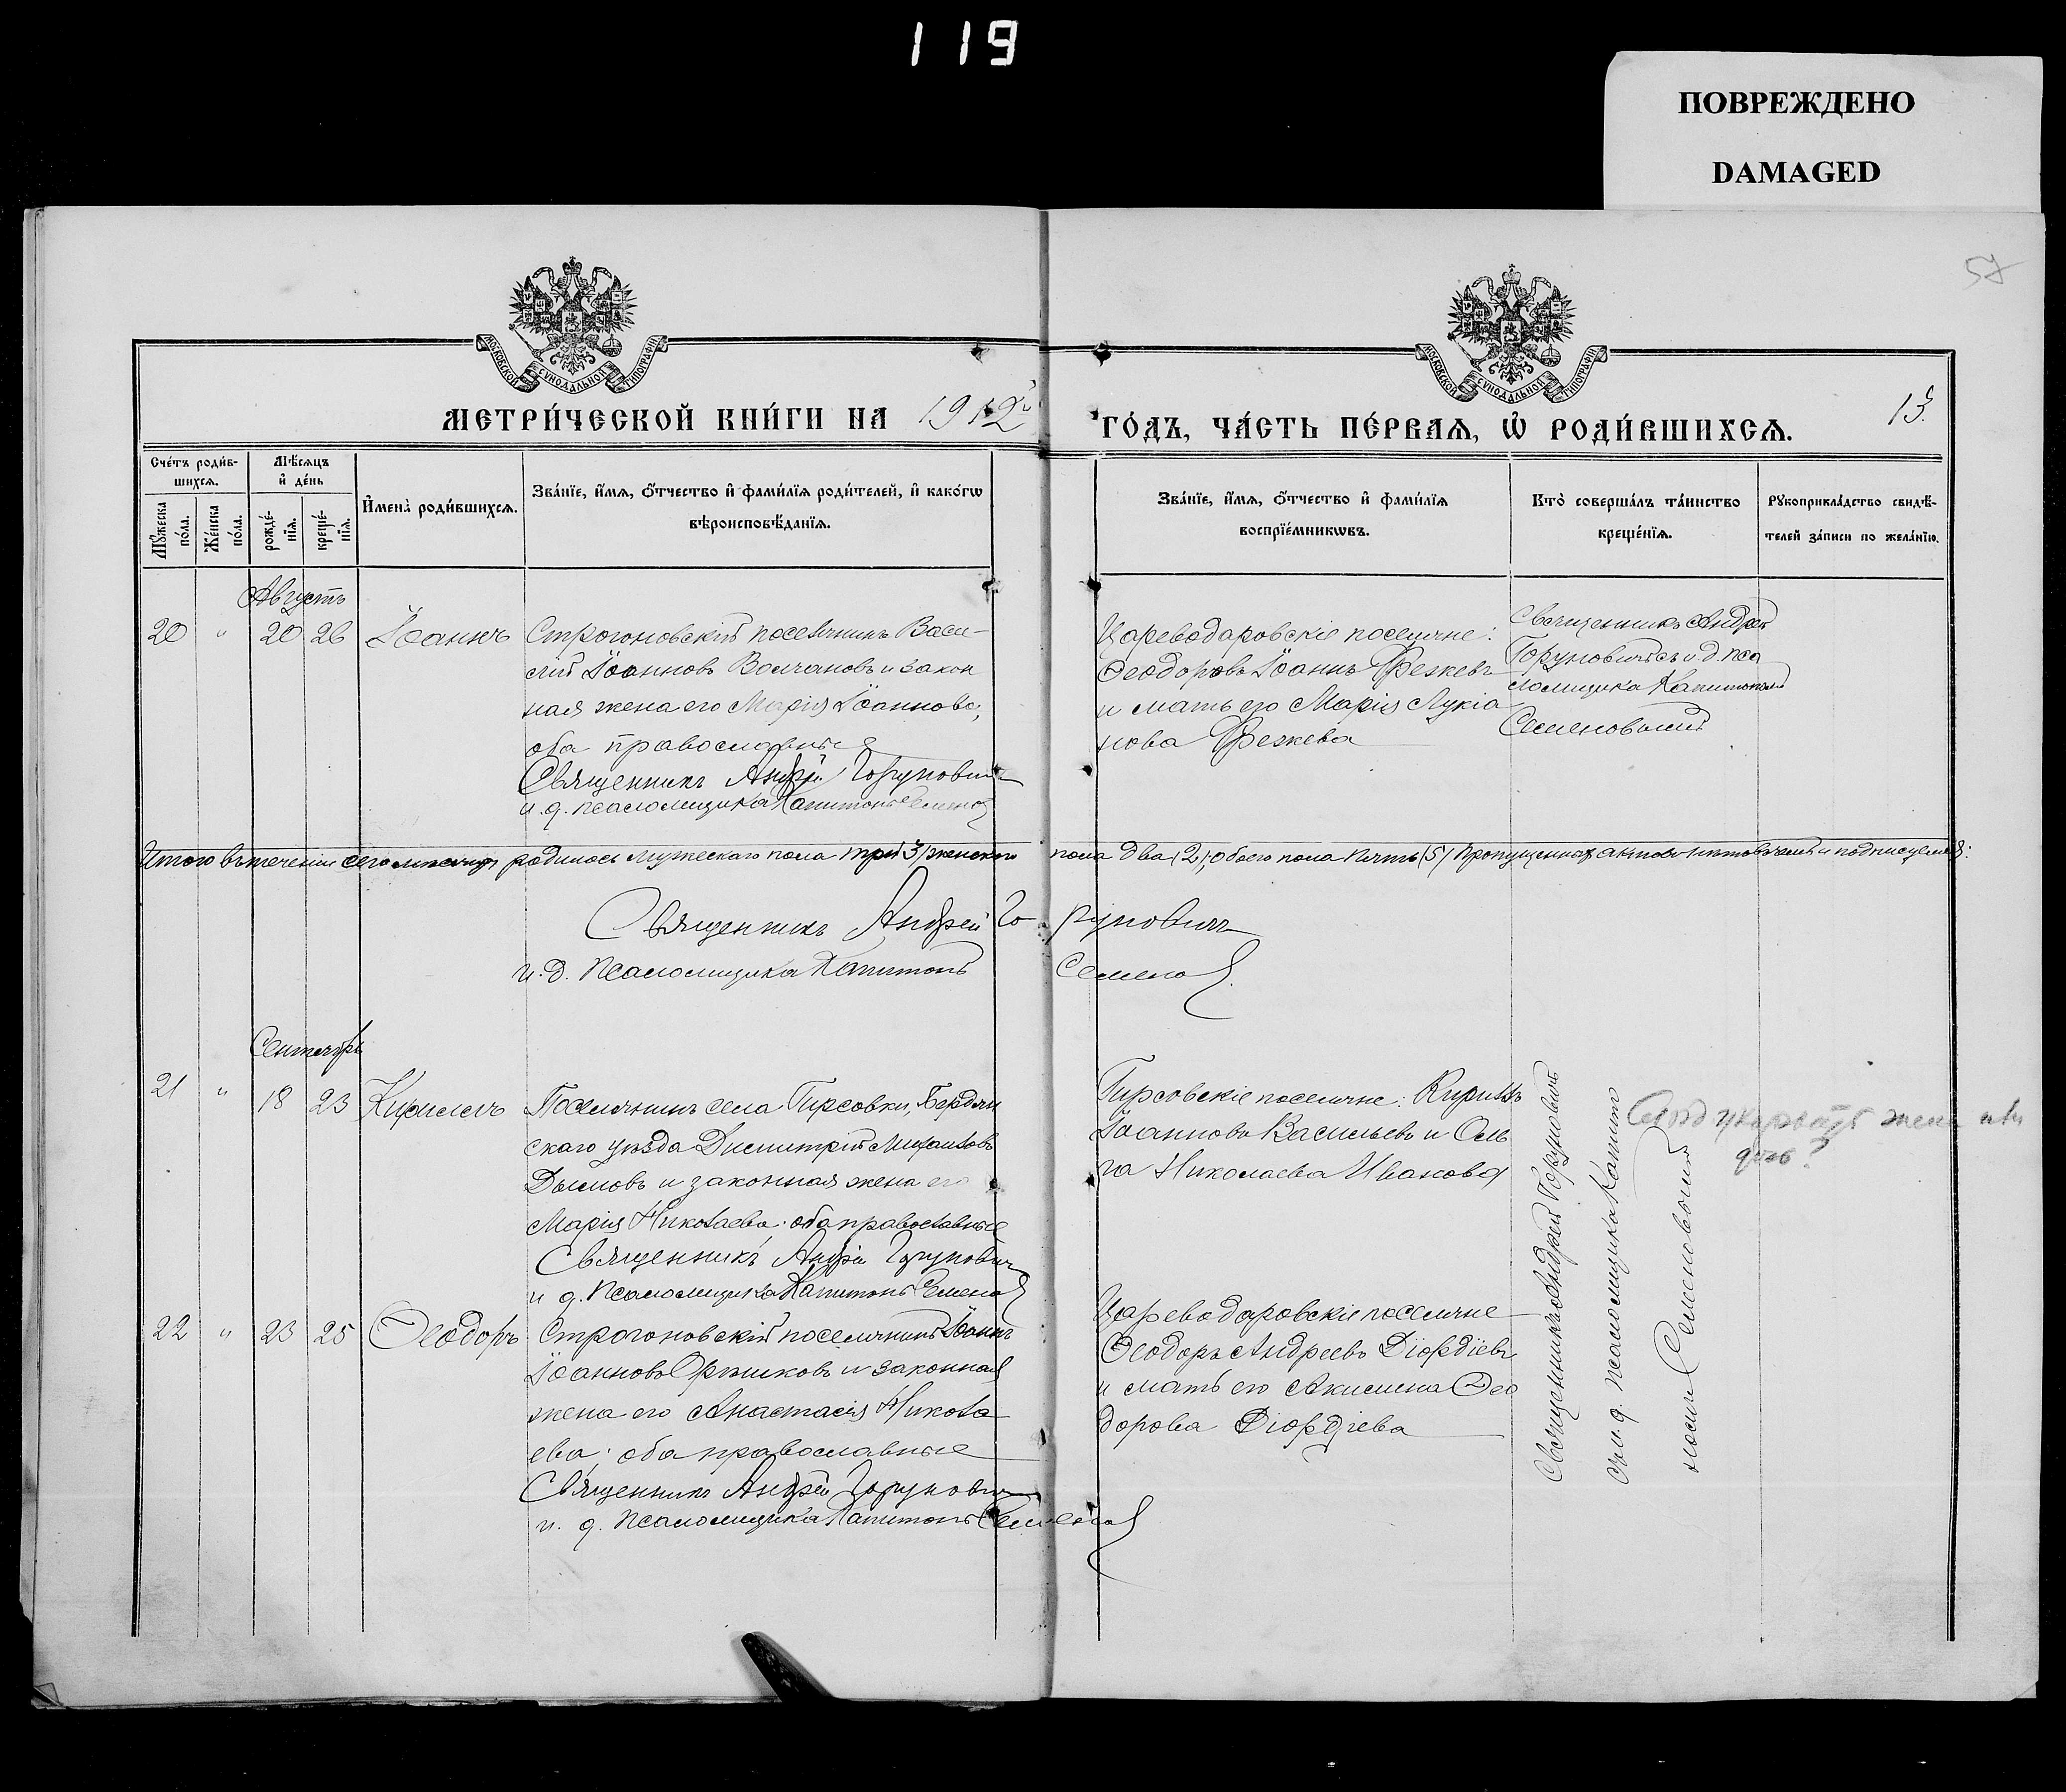 119
ПОВРЕЖДЕНО
DAMAGED
57
МОСКОВСКОЙ СѴНОДАЛЬНОЙ ТИПОГРАФІИ
МОСКОВСКОЙ СѴНОДАЛЬНОЙ ТИПОГРАФІИ
МЕТРИ́ЧЕСКОЙ КНИ́ГИ НА 1912й
ГО́ДЪ, ЧА́СТЬ ПЕ́РВАЯ, Ѡ҆ РОДИ́ВШИХСЯ.
13.
Сче́тъ роди́в-
шихся.
Мѣ́сяцъ
и҆ де́нь
Мꙋ́жеска
по́ла.
Же́нска
по́ла.
рожде́-
нїя.
креще́-
нїя.
И҆мена̀ роди́вшихся.
Зва́нїе, и҆́мя, ѻ҆́тчество и҆ фами́лїя роди́телей, и҆ како́гѡ
вѣроисповѣ́данїя.
Зва́нїе, и҆́мя, ѻ҆́тчество и҆ фами́лїя
воспрїе́мникѡвъ.
Кто̀ соверша́лъ та́инство
креще́нїя.
Рꙋкоприкла́дство свидѣ́-
телей за́писи по жела́нїю.
Августъ
20 " 20 26 Іоаннъ
Строгоновскій поселянинъ Васи-
лій Іоанновъ Волчановъ и закон
ная жена его Марія Іоаннова,
оба православные
Священникъ Андрей Горунович
и. д. псаломщика Капитонъ Семенов
Цареводаровскіе поселяне:
Ѳеодоровъ Іоаннъ
и мать его Марія Лукіа
нова
Священникъ Андрей
Горуновичъ съ и. д. пса
ломщика Капитономъ
Семеновымъ
Итого въ теченіи сего мѣсяца родилось мужескаго пола три (3) женскаго пола два (2), обоего пола пять (5) Пропущенныхъ актовъ нѣтъ въ чемъ и подписуемся:
Священникъ Андрей Горунович
и. д. Псаломщика Капитонъ Семенов.
Сентябрь
21 " 18 23 Кириллъ
Поселянинъ села Гирсовки, Бердян
скаго уѣзда Димитрій Михаиловъ
Дымовъ и законная жена его
Марія Николаева; оба православные
Священникъ Андрей Горунович
и д. Псаломщика Капитонъ Семенов
Гирсовскіе поселяне: Кириллъ
Іоанновъ Васильевъ и Оль
га Николаева Иванова
22 " 23 25 Ѳеодоръ
Строгоновскій поселянинъ Іоаннъ
Іоанновъ Орѣшковъ и законная
жена его Анастасія Никола
ева; оба православные
Священникъ Андрей Горунович
и. д. Псаломщика Капитонъ Семенов
Цареводаровскіе поселяне
Ѳеодоръ Андреевъ Діордіевъ
и мать его Акилина Ѳео
дорова Діордіева
Священникъ Андрей Горуновичъ
съ и. д. псаломщика Капит
номъ Семеновымъ